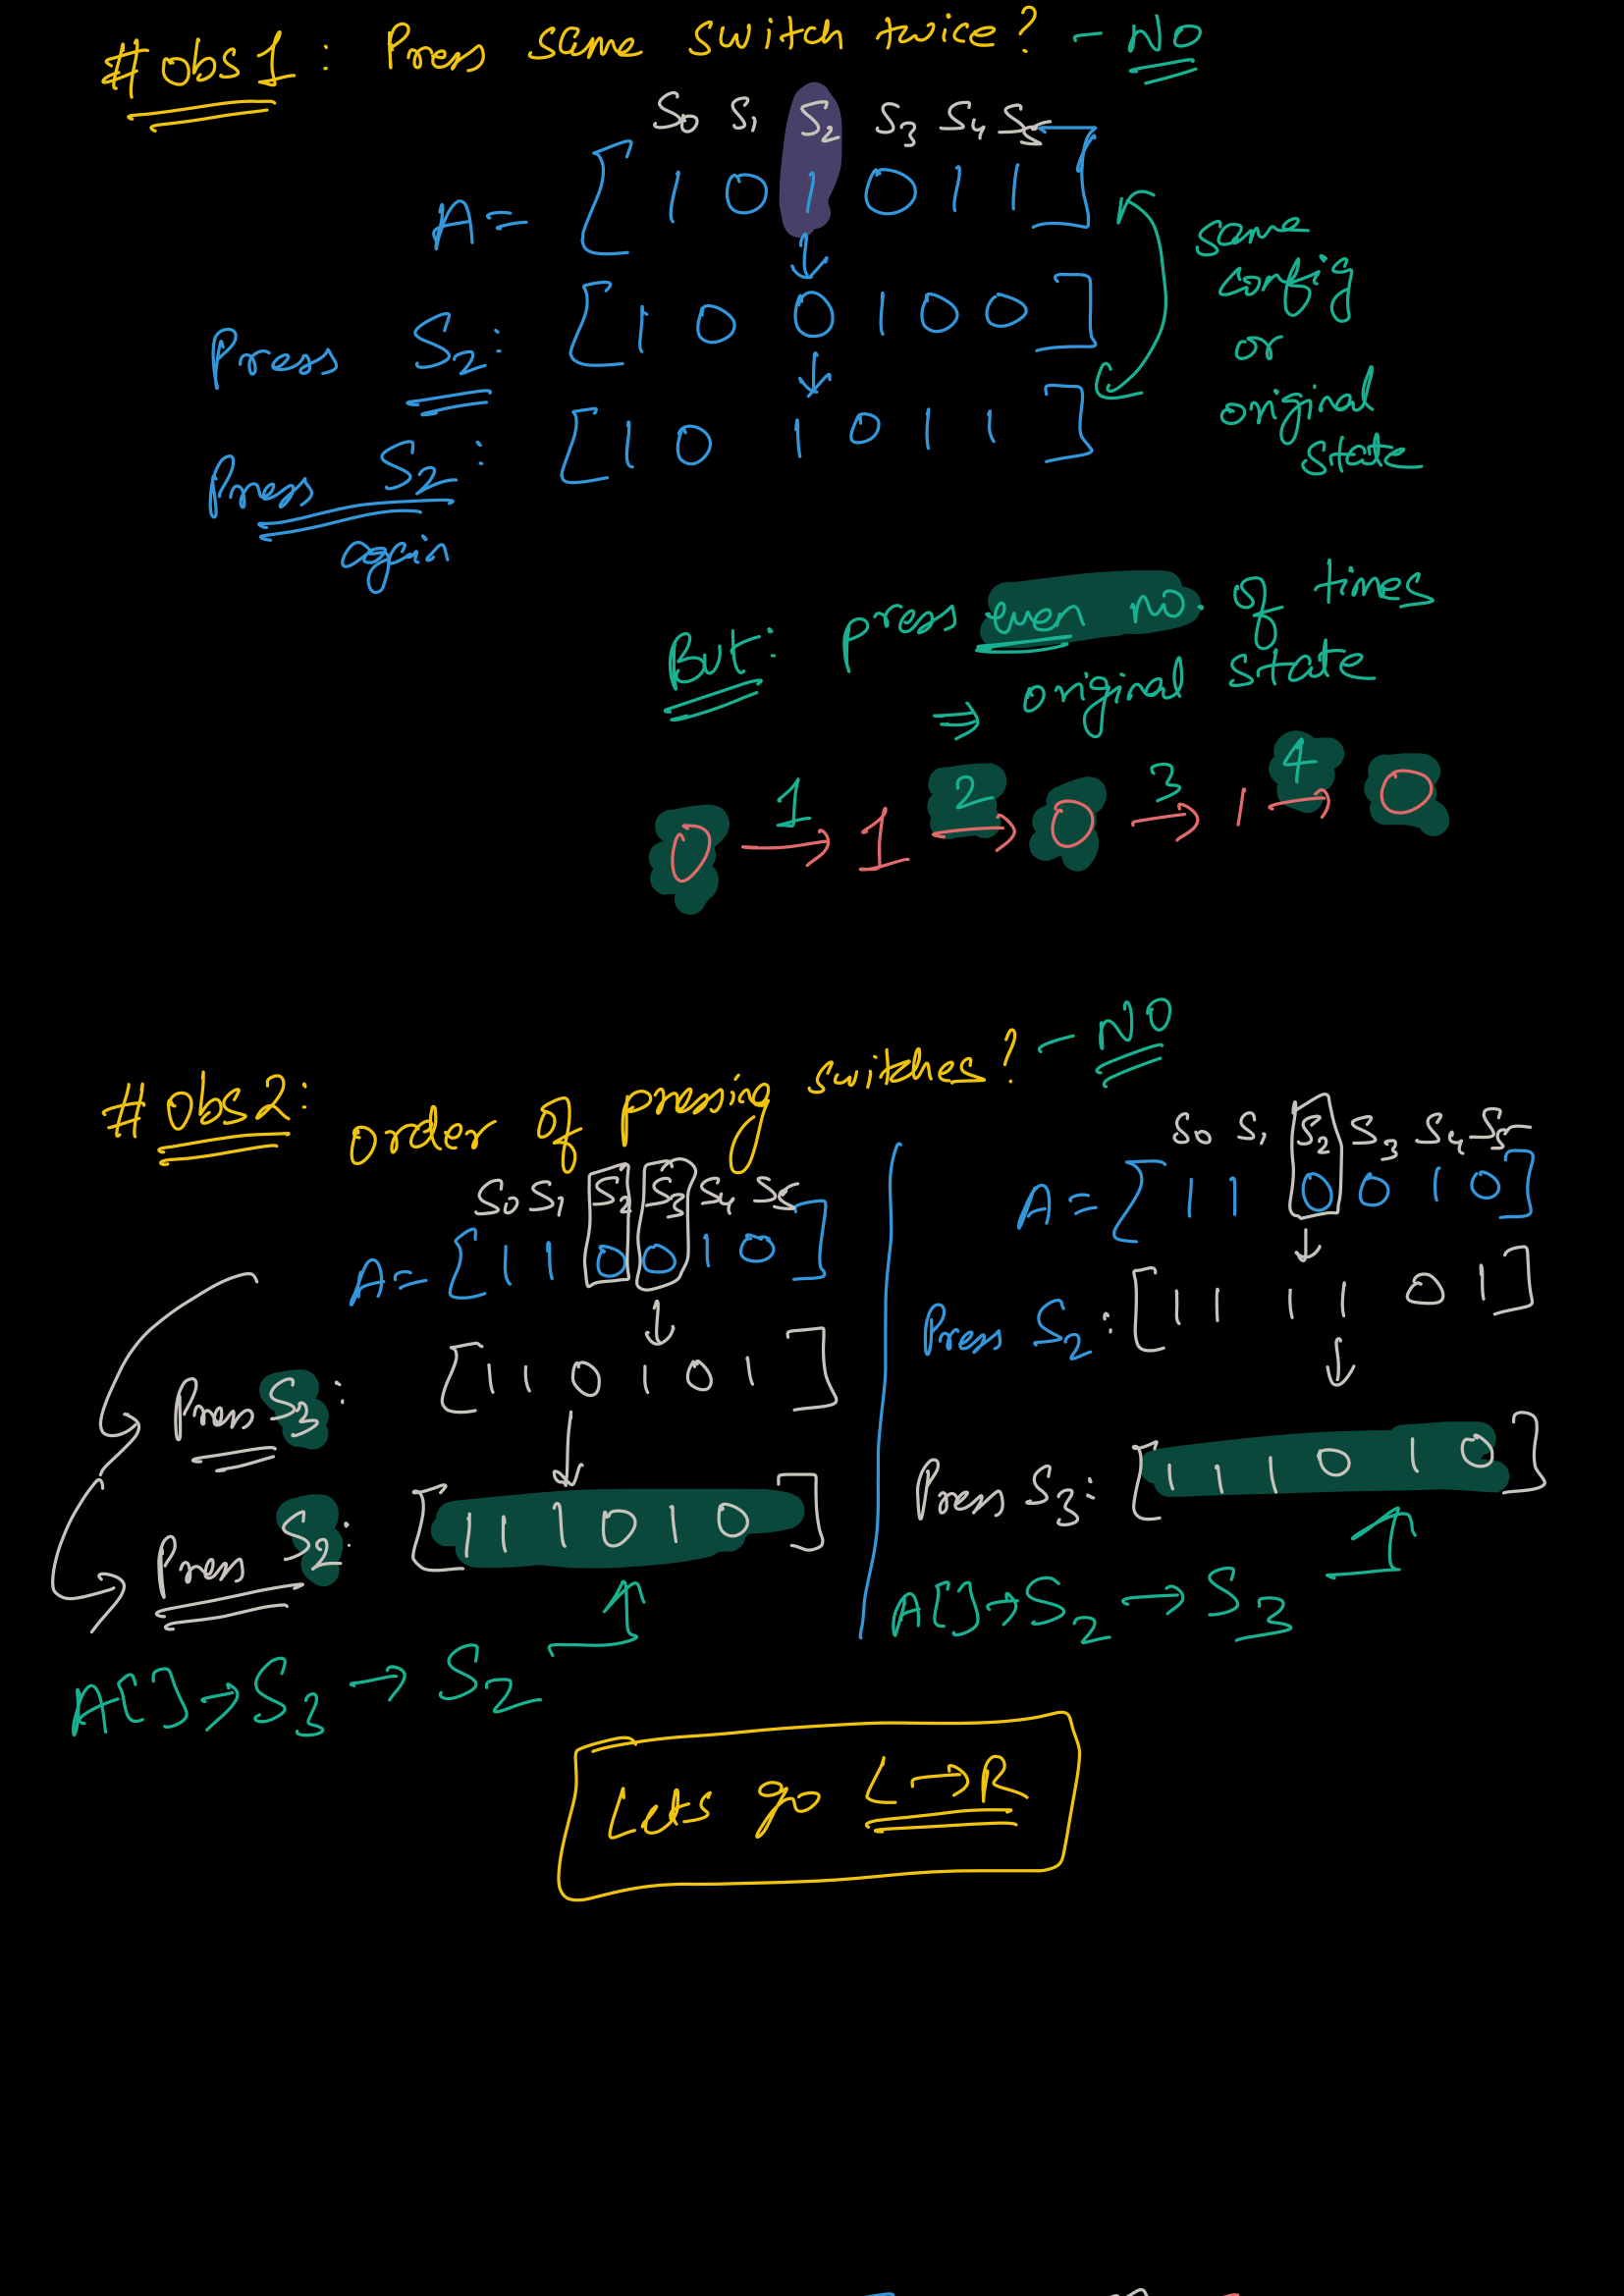 #obs1: Press same switch twice? - NO
S0 S1 S2 S3 S4 S5
A = [1 0 1 0 1 1]
Press S2: [1 0 0 1 0 0]
Press S2: [1 0 1 0 1 1]
again
same
config
or
original
state
But: press even no. of times
⇒ original state
0 →1 1 →2 0 →3 1 →4 0
#obs2: order of pressing switches? - NO
S0 S1 S2 S3 S4 S5
A = [1 1 0 0 1 0]
Press S3: [1 1 0 1 0 1]
Press S2: [1 1 1 0 1 0]
A[] → S3 → S2
S0 S1 S2 S3 S4 S5
A = [1 1 0 0 1 0]
Press S2: [1 1 1 1 0 1]
Press S3: [1 1 1 0 1 0]
A[] → S2 → S3
Lets go L → R